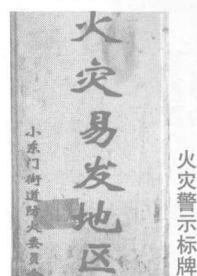 火灾易发地区
小东门街道防火委员会
火灾警示标牌